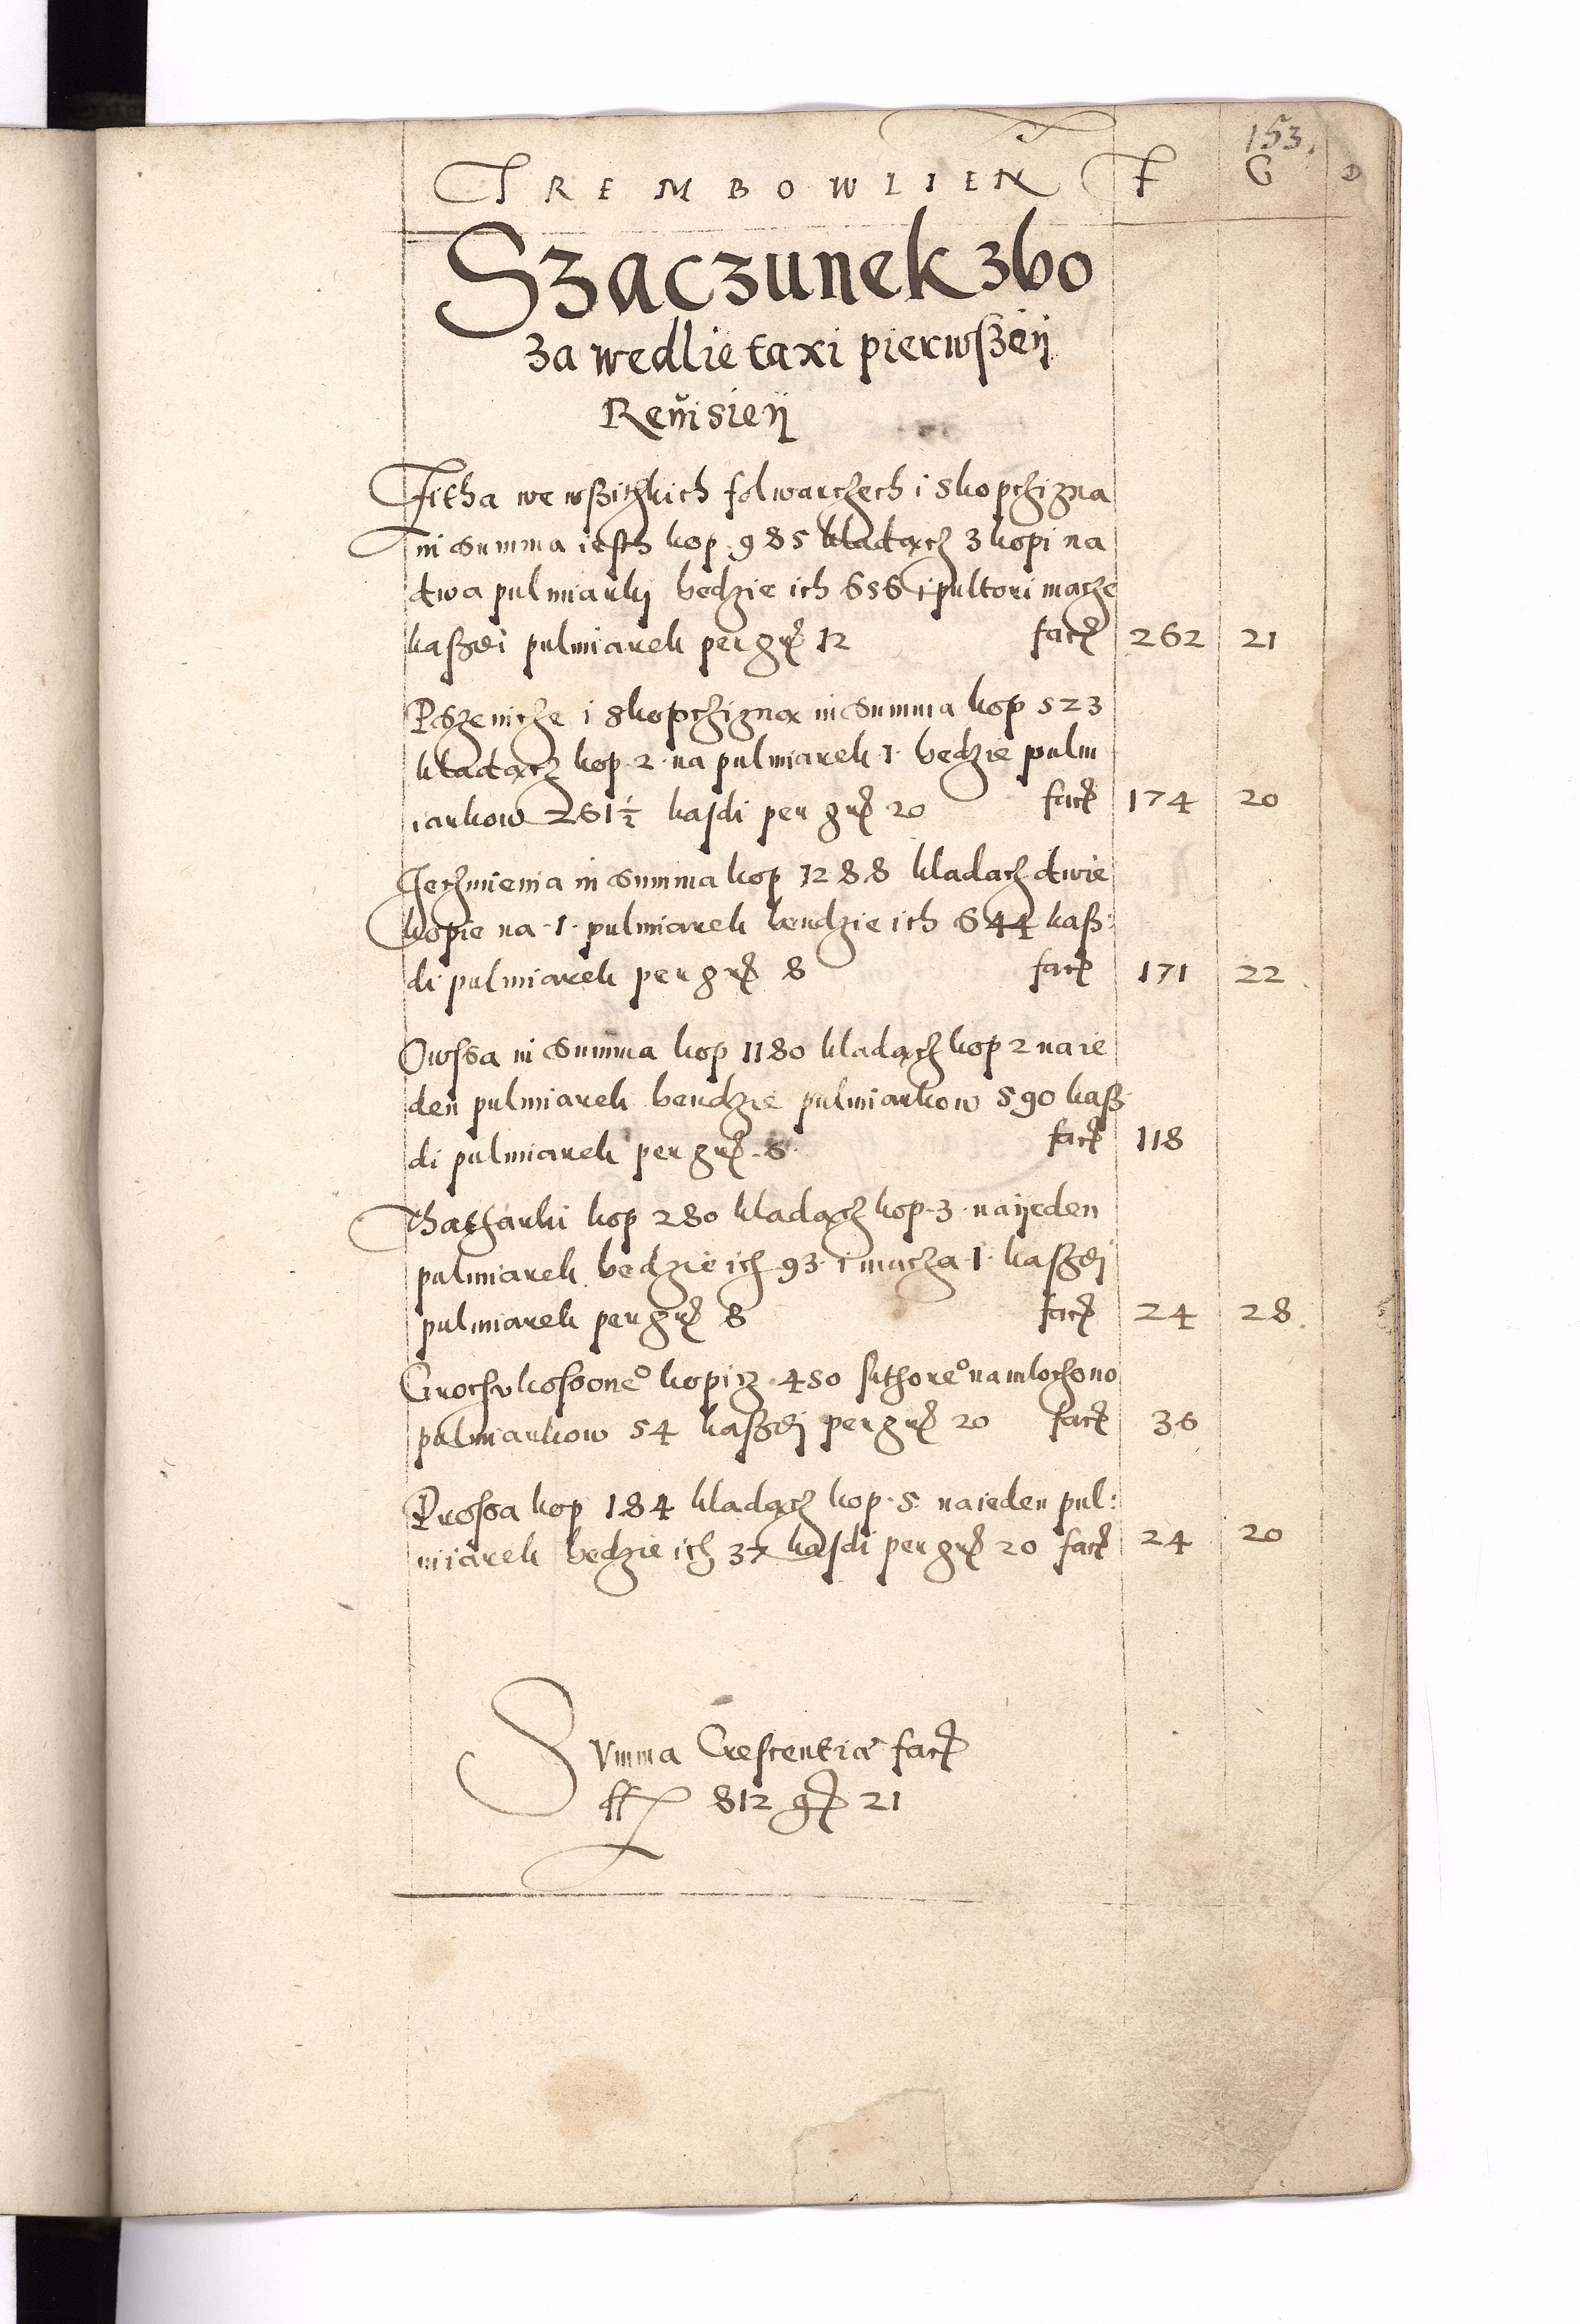 153.
TREMBOWLIEN F G D
Szaczunek zbo
za wedlie taxi pierwszeÿ
Revisieÿ
Zitha we wßitzkich folwarczech i skopczizna
in Summa iesth kop 985 kladącz 3 kopi na
dwa pulmiarkj bedzie ich 656 i pultori macze
kaßdi pulmiarek per gr̃ 12 facĩt 262 21
Pszenicze i skopczizną in Summa kop 523
kladącz kop 2 na pulmiarek 1 bedzie pulm
iarkow 261½ kasdi per gr̃ 20 facĩt 174 20
Jeczmienia in Summa kop 1288 kladacz dwie
kopie na 1 pulmiarek bendzie ich 644 kaß:
di pulmiarek per gr̃ 8 facĩt 171 22
Owssa in Summa kop 1180 kladącz kop 2 na ie
den pulmiarek bendzie pulmiarkow 590 kaß
di pulmiarek per gr̃ 6 facĩt 118
Thatharki kop 280 kladącz kop 3 na ijeden
pulmiarek bedzie ich 93 i macza 1 kaßdj
pulmiarek per gr̃ 8 facĩt 24 28
Grochu kossone° kopicz 450 kthore° namloczono
pulmiarkow 54 kaßdj per gr̃ 20 facĩt 36
Prossa kop 184 kladącz kop 5 na ieden pul:
miarek bedzie ich 37 kasdi per gr̃ 20 facĩt 24 20
Summa Crescentiæ facĩt
ff 812 gr̃ 21